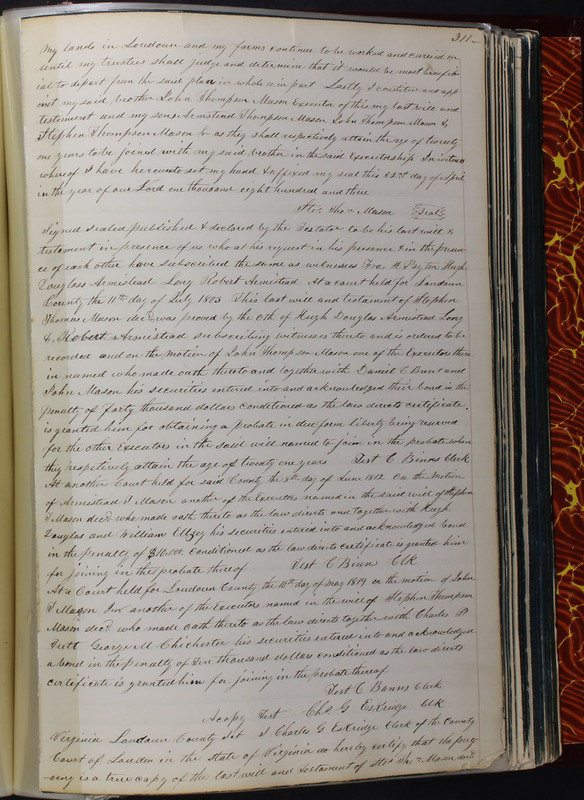 311
My lands in Loudoun and my farms continue to be worked and carried on
until my trustees shall judge and determine that it would be most benefic
ial to depart from the said plan in whole or in part Lastly I constitute and app
oint my said brother John Thompson Mason Executor of this my last will and
testament and my sons Armistead Thompson Mason John Thompson Mason &
Stephen Thompson Mason & as they shall respectively attain the age of twenty
one years to be joined with my said brother in the said Executorship In witness
whereof I have hereunto set my hand & affixed my seal this 22nd day of April
in the year of our Lord one thousand eight hundred and three
Ste. Thos Mason Seal
Signed sealed published & declared by the Testator to be his last will &
testament in presence of us who at his request in his presence & in the presen
ce of each other have subscribed the same as witnesses Fra. H Peyton Hugh
Douglass Armistead Long Robert Armistead At a court held for Loudoun
County the 11th day of July 1803 This last will and testament of Stephen
Thomas Mason decd was proved by the oth of Hugh Douglas Armistead Long
& Robert Armistead subscribing witnesses thereto and is ordered to be
recorded and on the motion of John Thompson Mason one of the Executors there
in named who made oath thereto and together with Daniel C Brent and
John Mason his securities entered into and acknowledged their bond in the
penalty of forty thousand dollars conditioned as the law directs certificate
is granted him for obtaining a probate in due form liberty being reserved
for the other Executors in the said will named to join in the probate when
they respectively attain the age of twenty one years Test C Binns Clerk
At another Court held for said County the 8th day of June 1812 On the motion
of Armistead T Mason another of the Executors named in the said will of Stephen
T Mason decd who made oath thereto as the law directs and together with Hugh
Douglas and William Elzey his securities entered into and acknowledged bond
in the penalty of $10.000 conditioned as the law directs certificate is granted him
for joining in the probate thereof Test C Binns Clk
At a Court held for Loudoun County the 10th day of May 1819 on the motion of John
T Mason Jur another of the Executors named in the will of Stephen Thompson
Mason decd who made oath thereto as the law directs together with Charles P
Tutt George M Chichester his securities entered into and acknowledged
a bond in the penalty of Ten thousand dollars conditioned as the law directs
certificate is granted him for joining in the probate thereof
Test C Banns Clerk
A copy Test Chs G Eskridge Clk
Virginia Loudoun County Sct I Charles G Eskridge Clerk of the County
Court of Louden in the State of Virginia do hereby certify that the foreg
oing is a true copy of the last will and testament of Ste Thos Mason decd